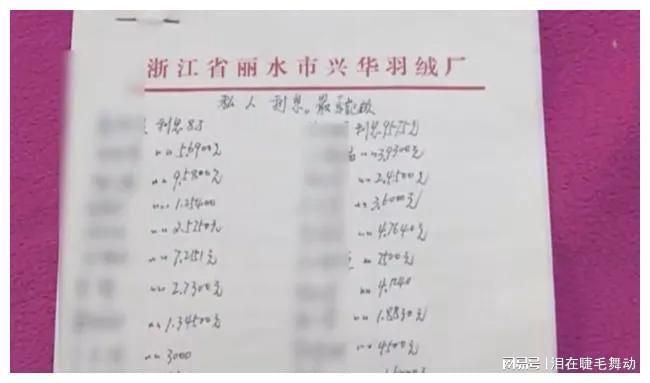 浙江省丽水市兴华羽绒厂
私人利息。最
利息85 利息9575元
〃〃5.6900元 〃〃3.9300元
〃〃9.5800元 〃〃2.4500元
〃〃1.25400 〃〃3.6000元
〃〃2.5250元 〃〃4.7640元
〃〃7.2151元 〃〃2500元
〃〃2.7300元 〃〃4.1240
〃〃1.34500元 〃〃1.8830元
〃〃3000 〃〃4500元
搜狐号|泪在睫毛舞动